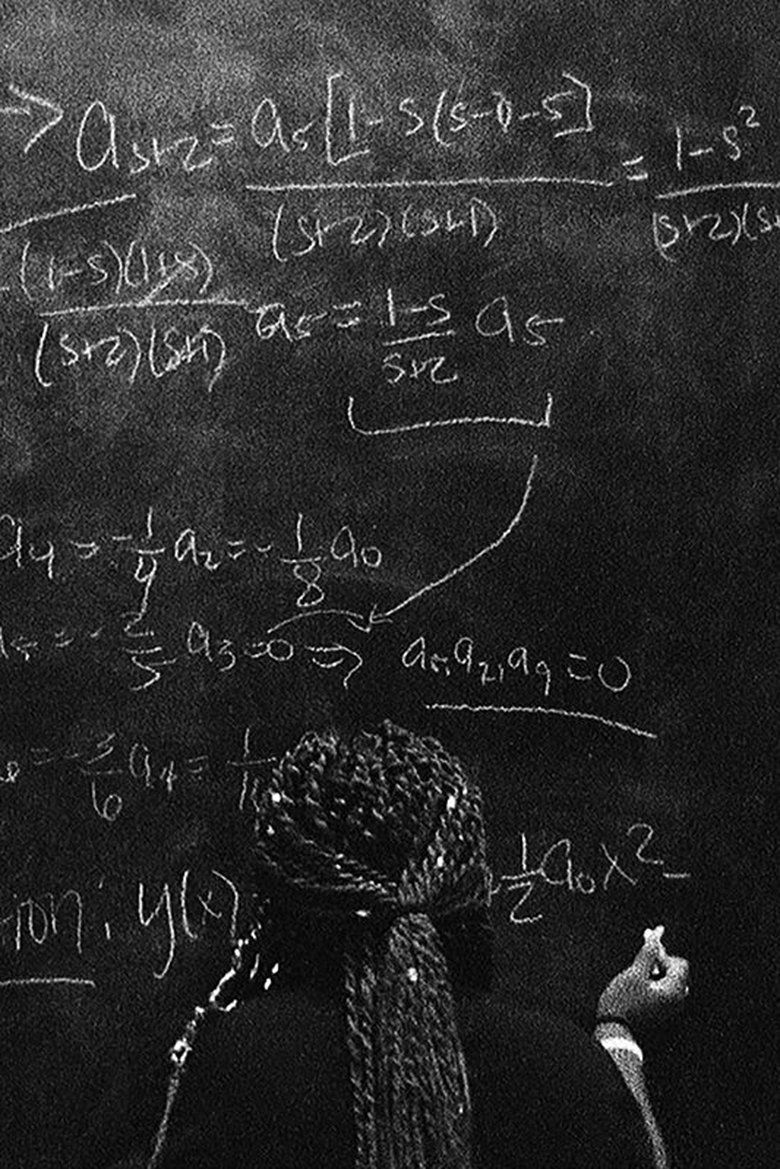 → a_{s+2} = a_s[1-s(s-1)-s] / (s+2)(s+1) = 1-s² / (s+2)(s+
(1-s)(1+s) / (s+2)(s+1) a_s = 1-s / s+2 a_s
a4 = -1/4 a2 = -1/8 a0
= -2/5 a3 = 0 ⇒ a5, a7, a9 = 0
= -3/6 a4 = 1/
tion: y(x) 1/2 a0 x² -